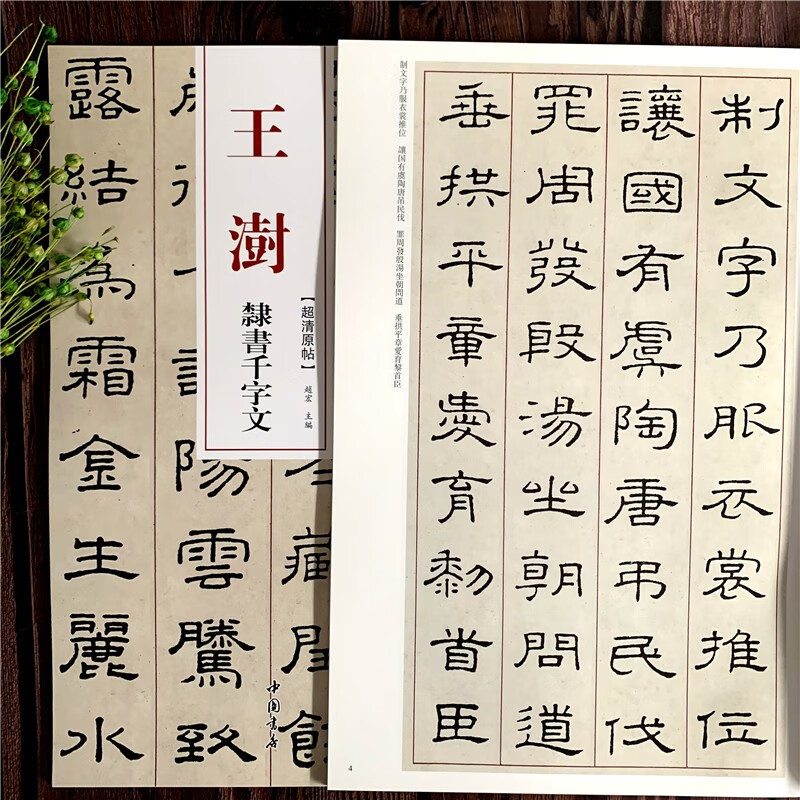 王澍
隸書千字文
【超清原帖】
趙宏 主編
中国書店
陽雲騰致
露結為霜金生麗水
制文字乃服衣裳推位
讓國有虞陶唐弔民伐
罪周發殷湯坐朝問道
垂拱平章愛育黎首臣
制文字乃服衣裳推位 讓国有虞陶唐吊民伐 罪周發殷湯坐朝問道 垂拱平章愛育黎首臣
4